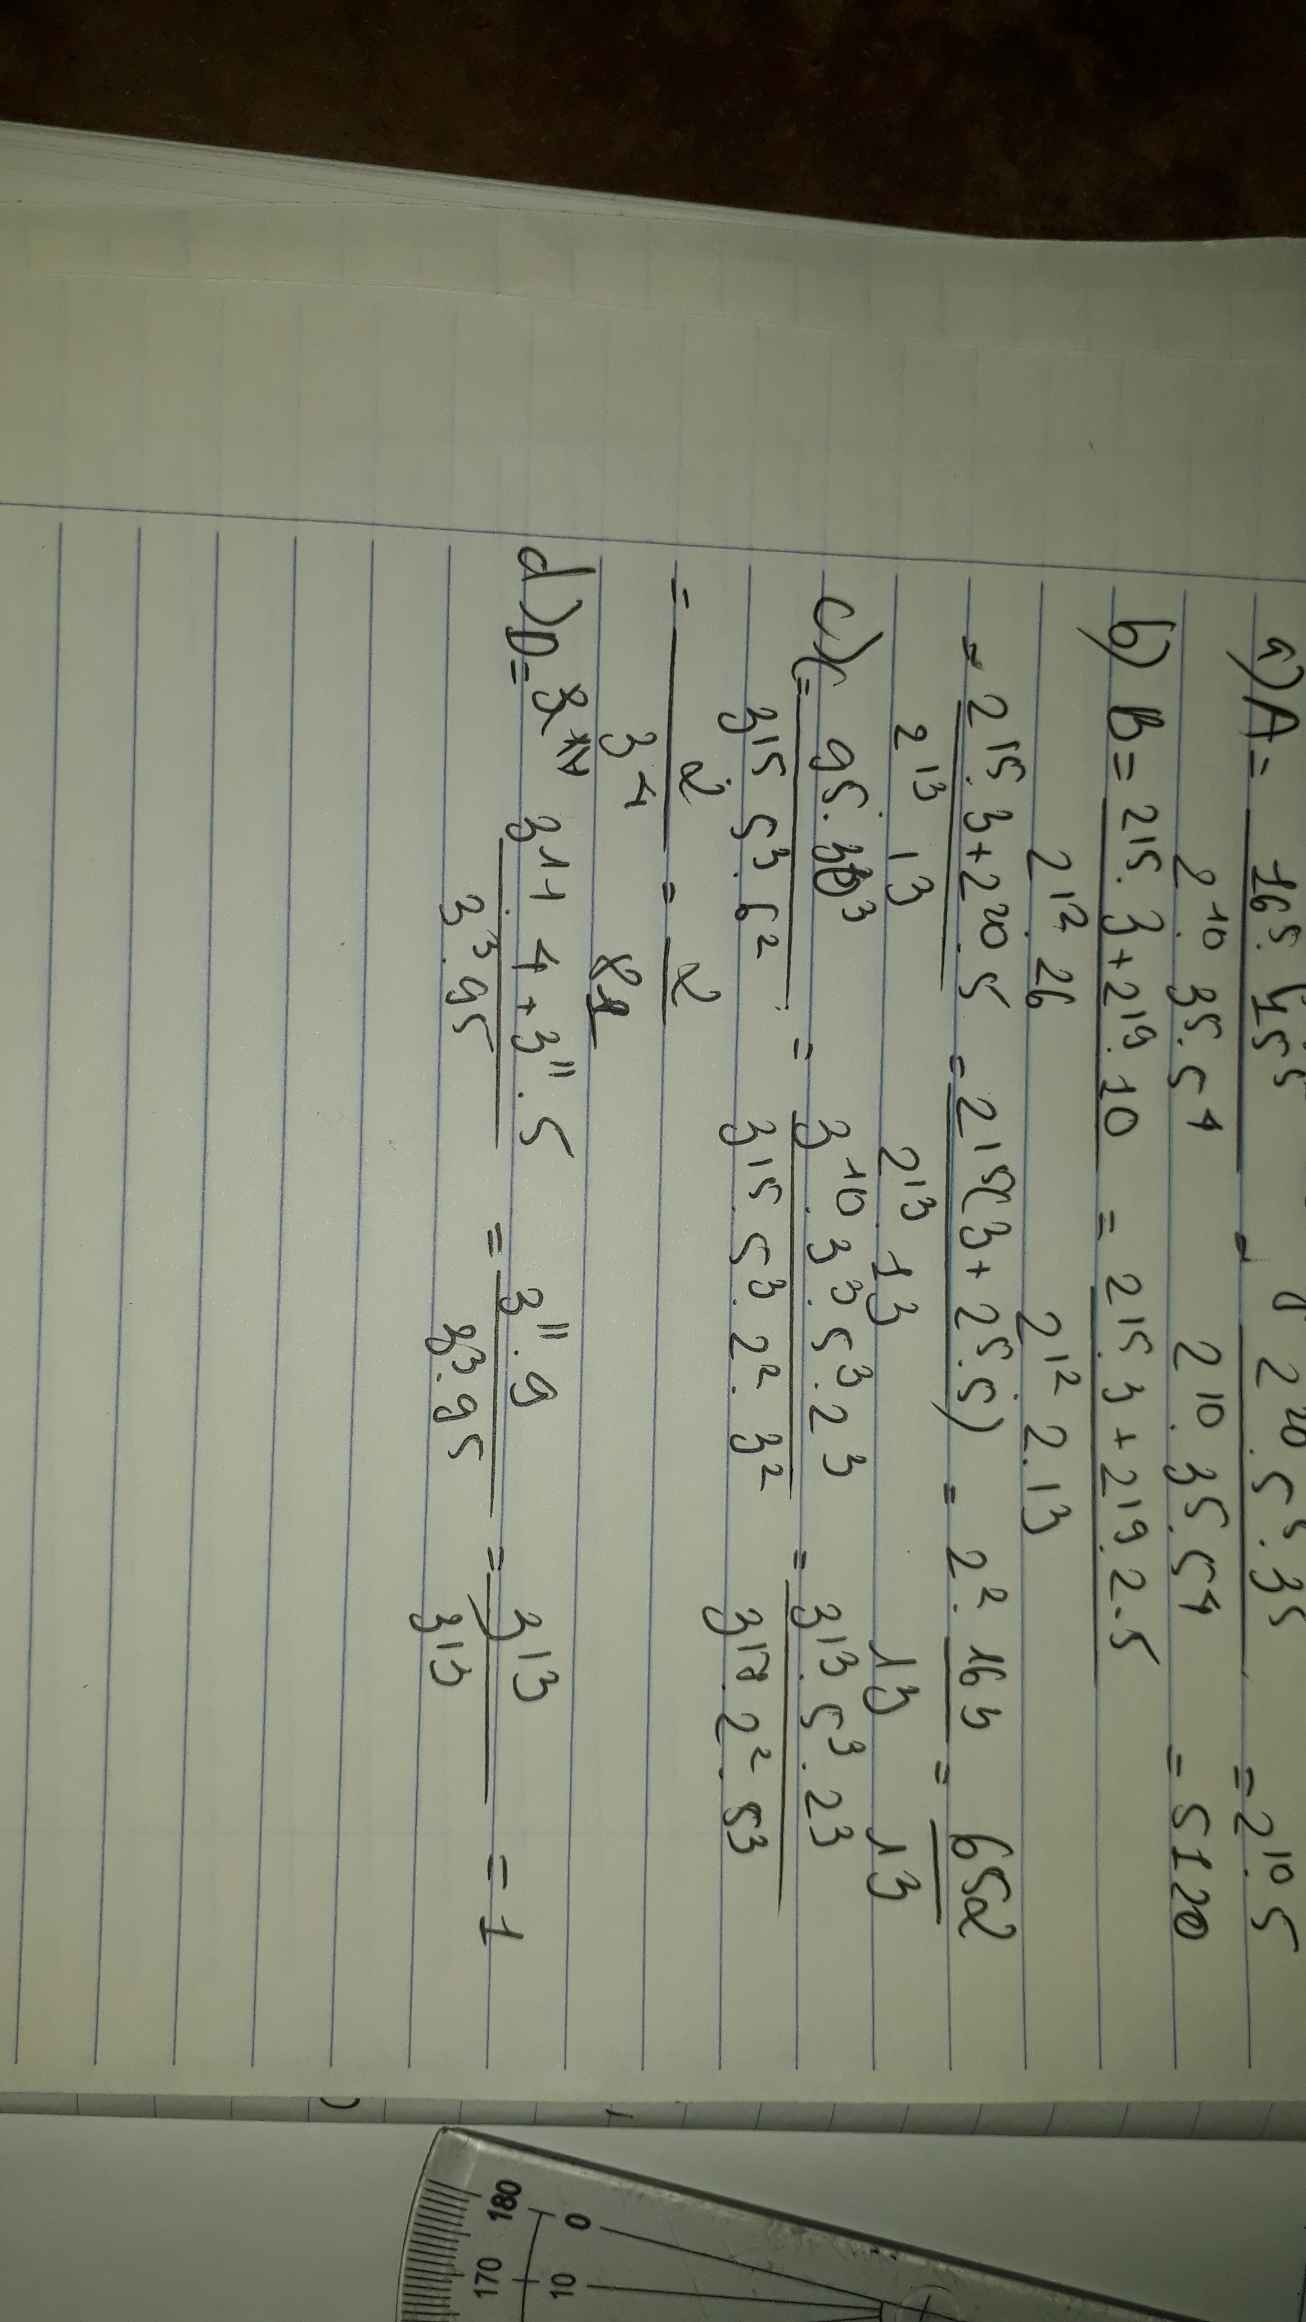 a) A = 16⁵ . 15⁵ / 2¹⁰ . 3⁵ . 5⁴ = 2²⁰ . 5⁵ . 3⁵ / 2¹⁰ . 3⁵ . 5⁴ = 2¹⁰ . 5
= 5120
b) B = 2¹⁵ . 3 + 2¹⁹ . 10 / 2¹² . 26 = 2¹⁵ . 3 + 2¹⁹ . 2 . 5 / 2¹² . 2 . 13
= 2¹⁵ . 3 + 2²⁰ . 5 / 2¹³ . 13 = 2¹⁵ (3 + 2⁵ . 5) / 2¹³ . 13 = 2² . 163 / 13 = 652 / 13
c) C = 9⁵ . 30³ / 3¹⁵ . 5³ . 6² = 3¹⁰ . 3³ . 5³ . 2³ / 3¹⁵ . 5³ . 2² . 3² = 3¹³ . 5³ . 2³ / 3¹⁷ . 2² . 5³
= 2 / 3⁴ = 2 / 81
d) D = 3¹¹ . 4 + 3¹¹ . 5 / 3³ . 9⁵ = 3¹¹ . 9 / 3³ . 9⁵ = 3¹³ / 3¹³ = 1
180 170
0 10